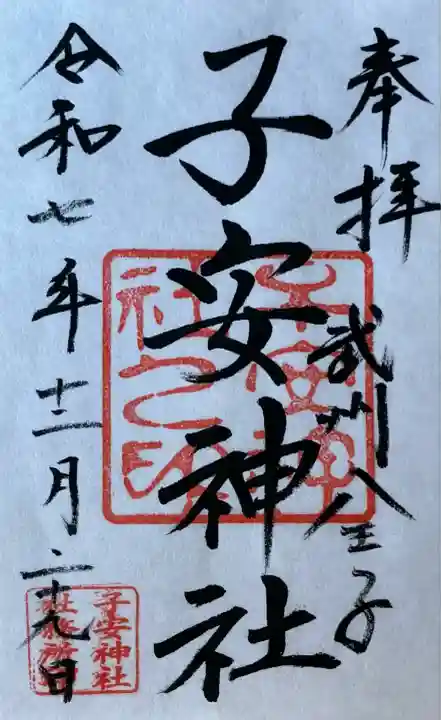 奉拝
武州八王子
子安神社
子安神社之印
令和七年十二月二十九日
子安神社
社務所印